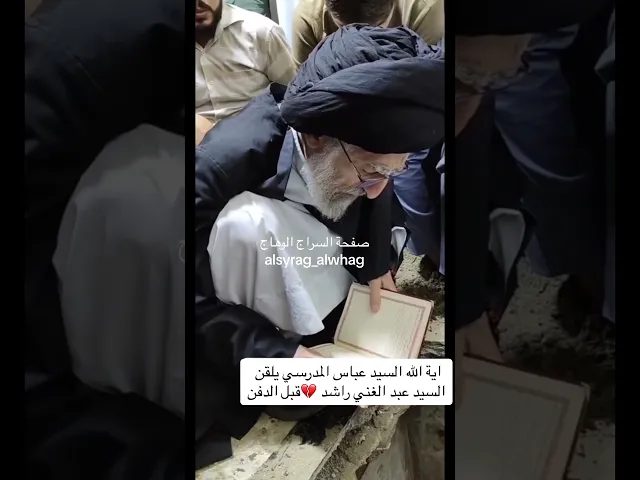 صفحة السراج الوهاج
alsyrag_alwhag
اية الله السيد عباس المدرسي يلقن
السيد عبد الغني راشد 💔قبل الدفن